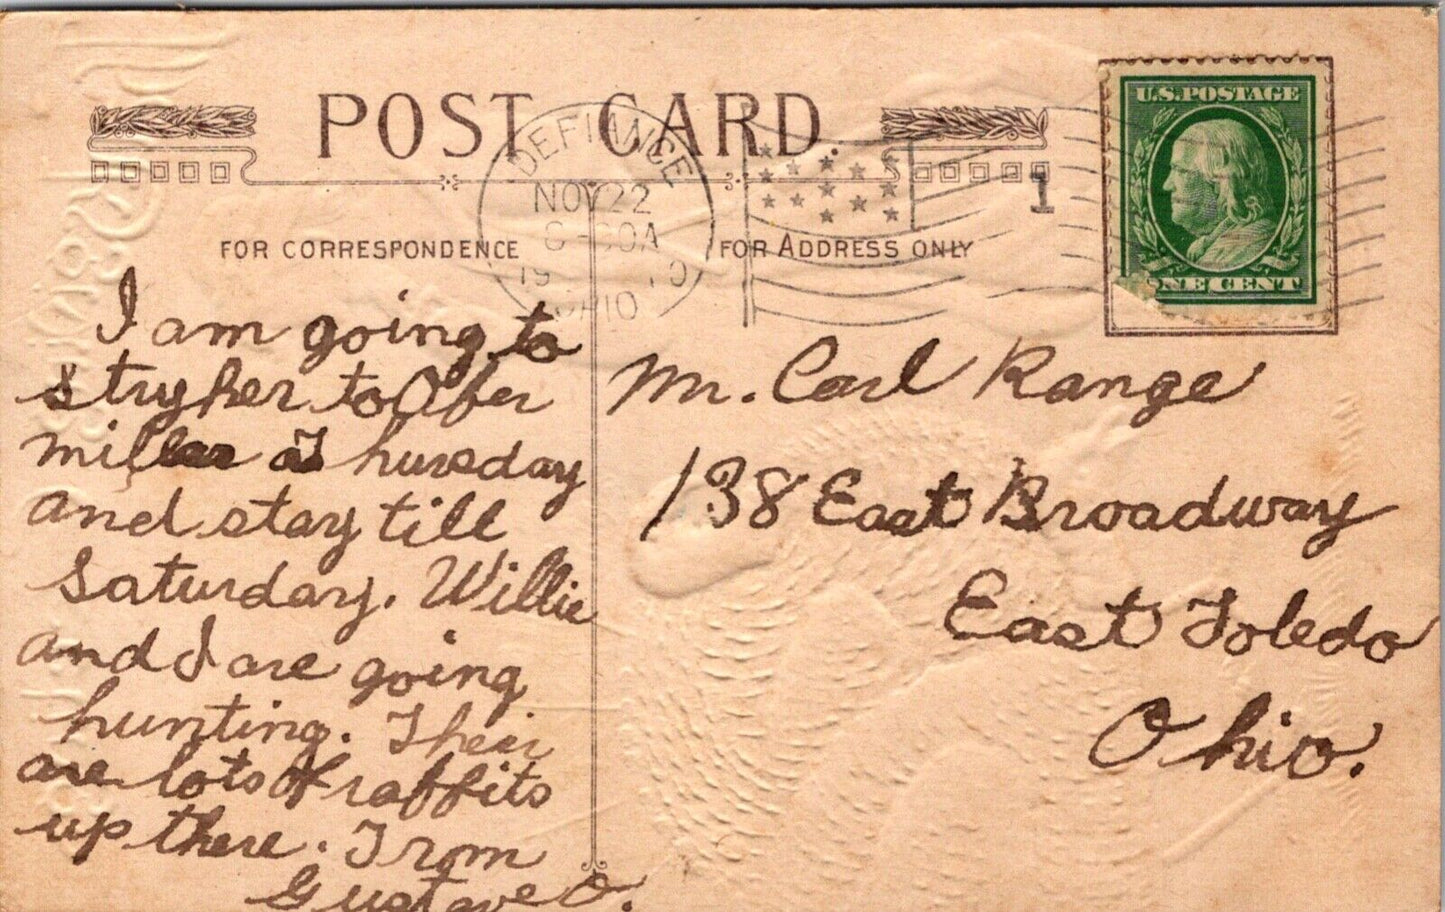 POST CARD.
DEFIANCE
NOV 22
OHIO
1
U.S. POSTAGE
ONE CENT
FOR CORRESPONDENCE
FOR ADDRESS ONLY
I am going to
stryker to Aber
miller Thursday
and stay till
Saturday. Willie
and I are going
hunting. Their
are lots of rabbits
up there. From
Gustave O.
Mr. Carl Range
138 East Broadway
East Toledo
Ohio.